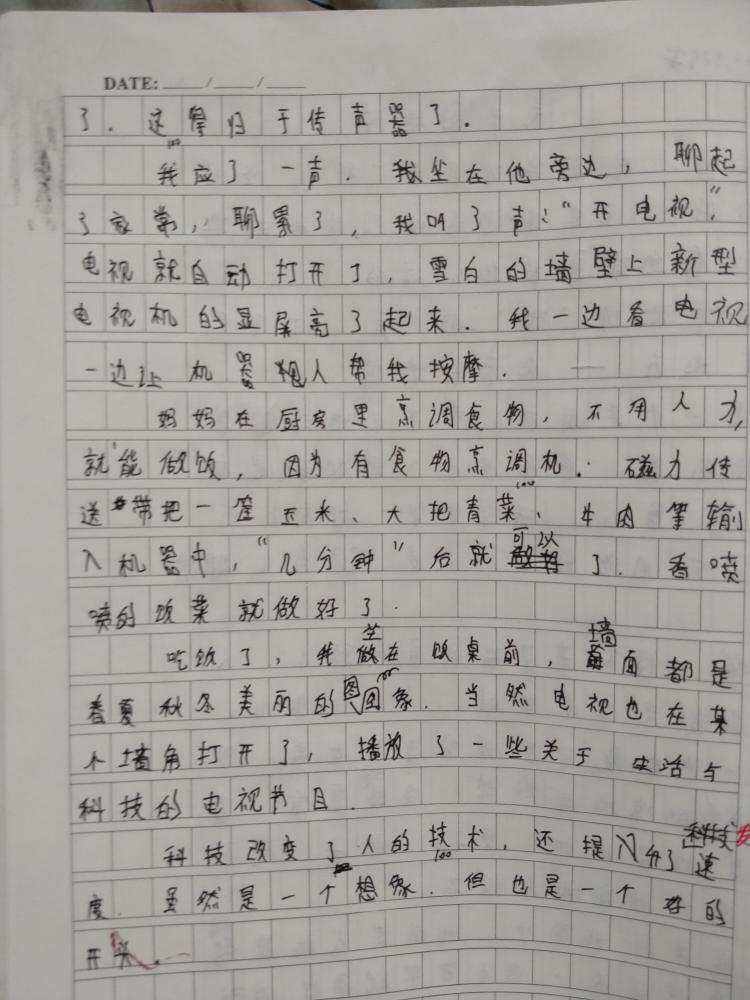 DATE: ___/___/___
了。这掌归于传声器了。
100
我应了一声。我坐在他旁边，聊起
了家常，聊累了，我叫了声：“开电视”，
电视就自动打开了，雪白的墙壁上新型
电视机的显屏亮了起来。我一边看电视
一边让机器人帮我按摩。
妈妈在厨房里烹调食物，不用人力，
就能做饭，因为有食物烹调机。磁力传
送带把一筐玉米、大把青菜、牛肉等输
200
入机器中，“几分钟”后就可以了。香喷
喷的饭菜就做好了。
吃饭了，我坐在饭桌前，墙面都是
春夏秋冬美丽的图象。当然电视也在某
300
个墙角打开了，播放了一些关于生活与
科技的电视节目。
科技改变了人的技术，还提升了科技发速
400
度。虽然是一个想象。但也是一个好的
开头。